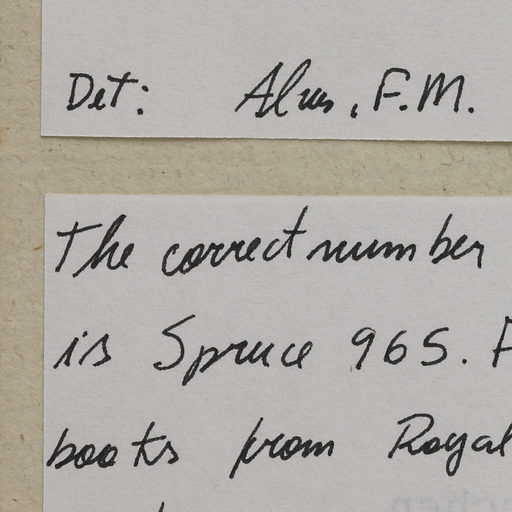 Det: Alves, F.M.
The correct number
is Spruce 965. F
books from Royal